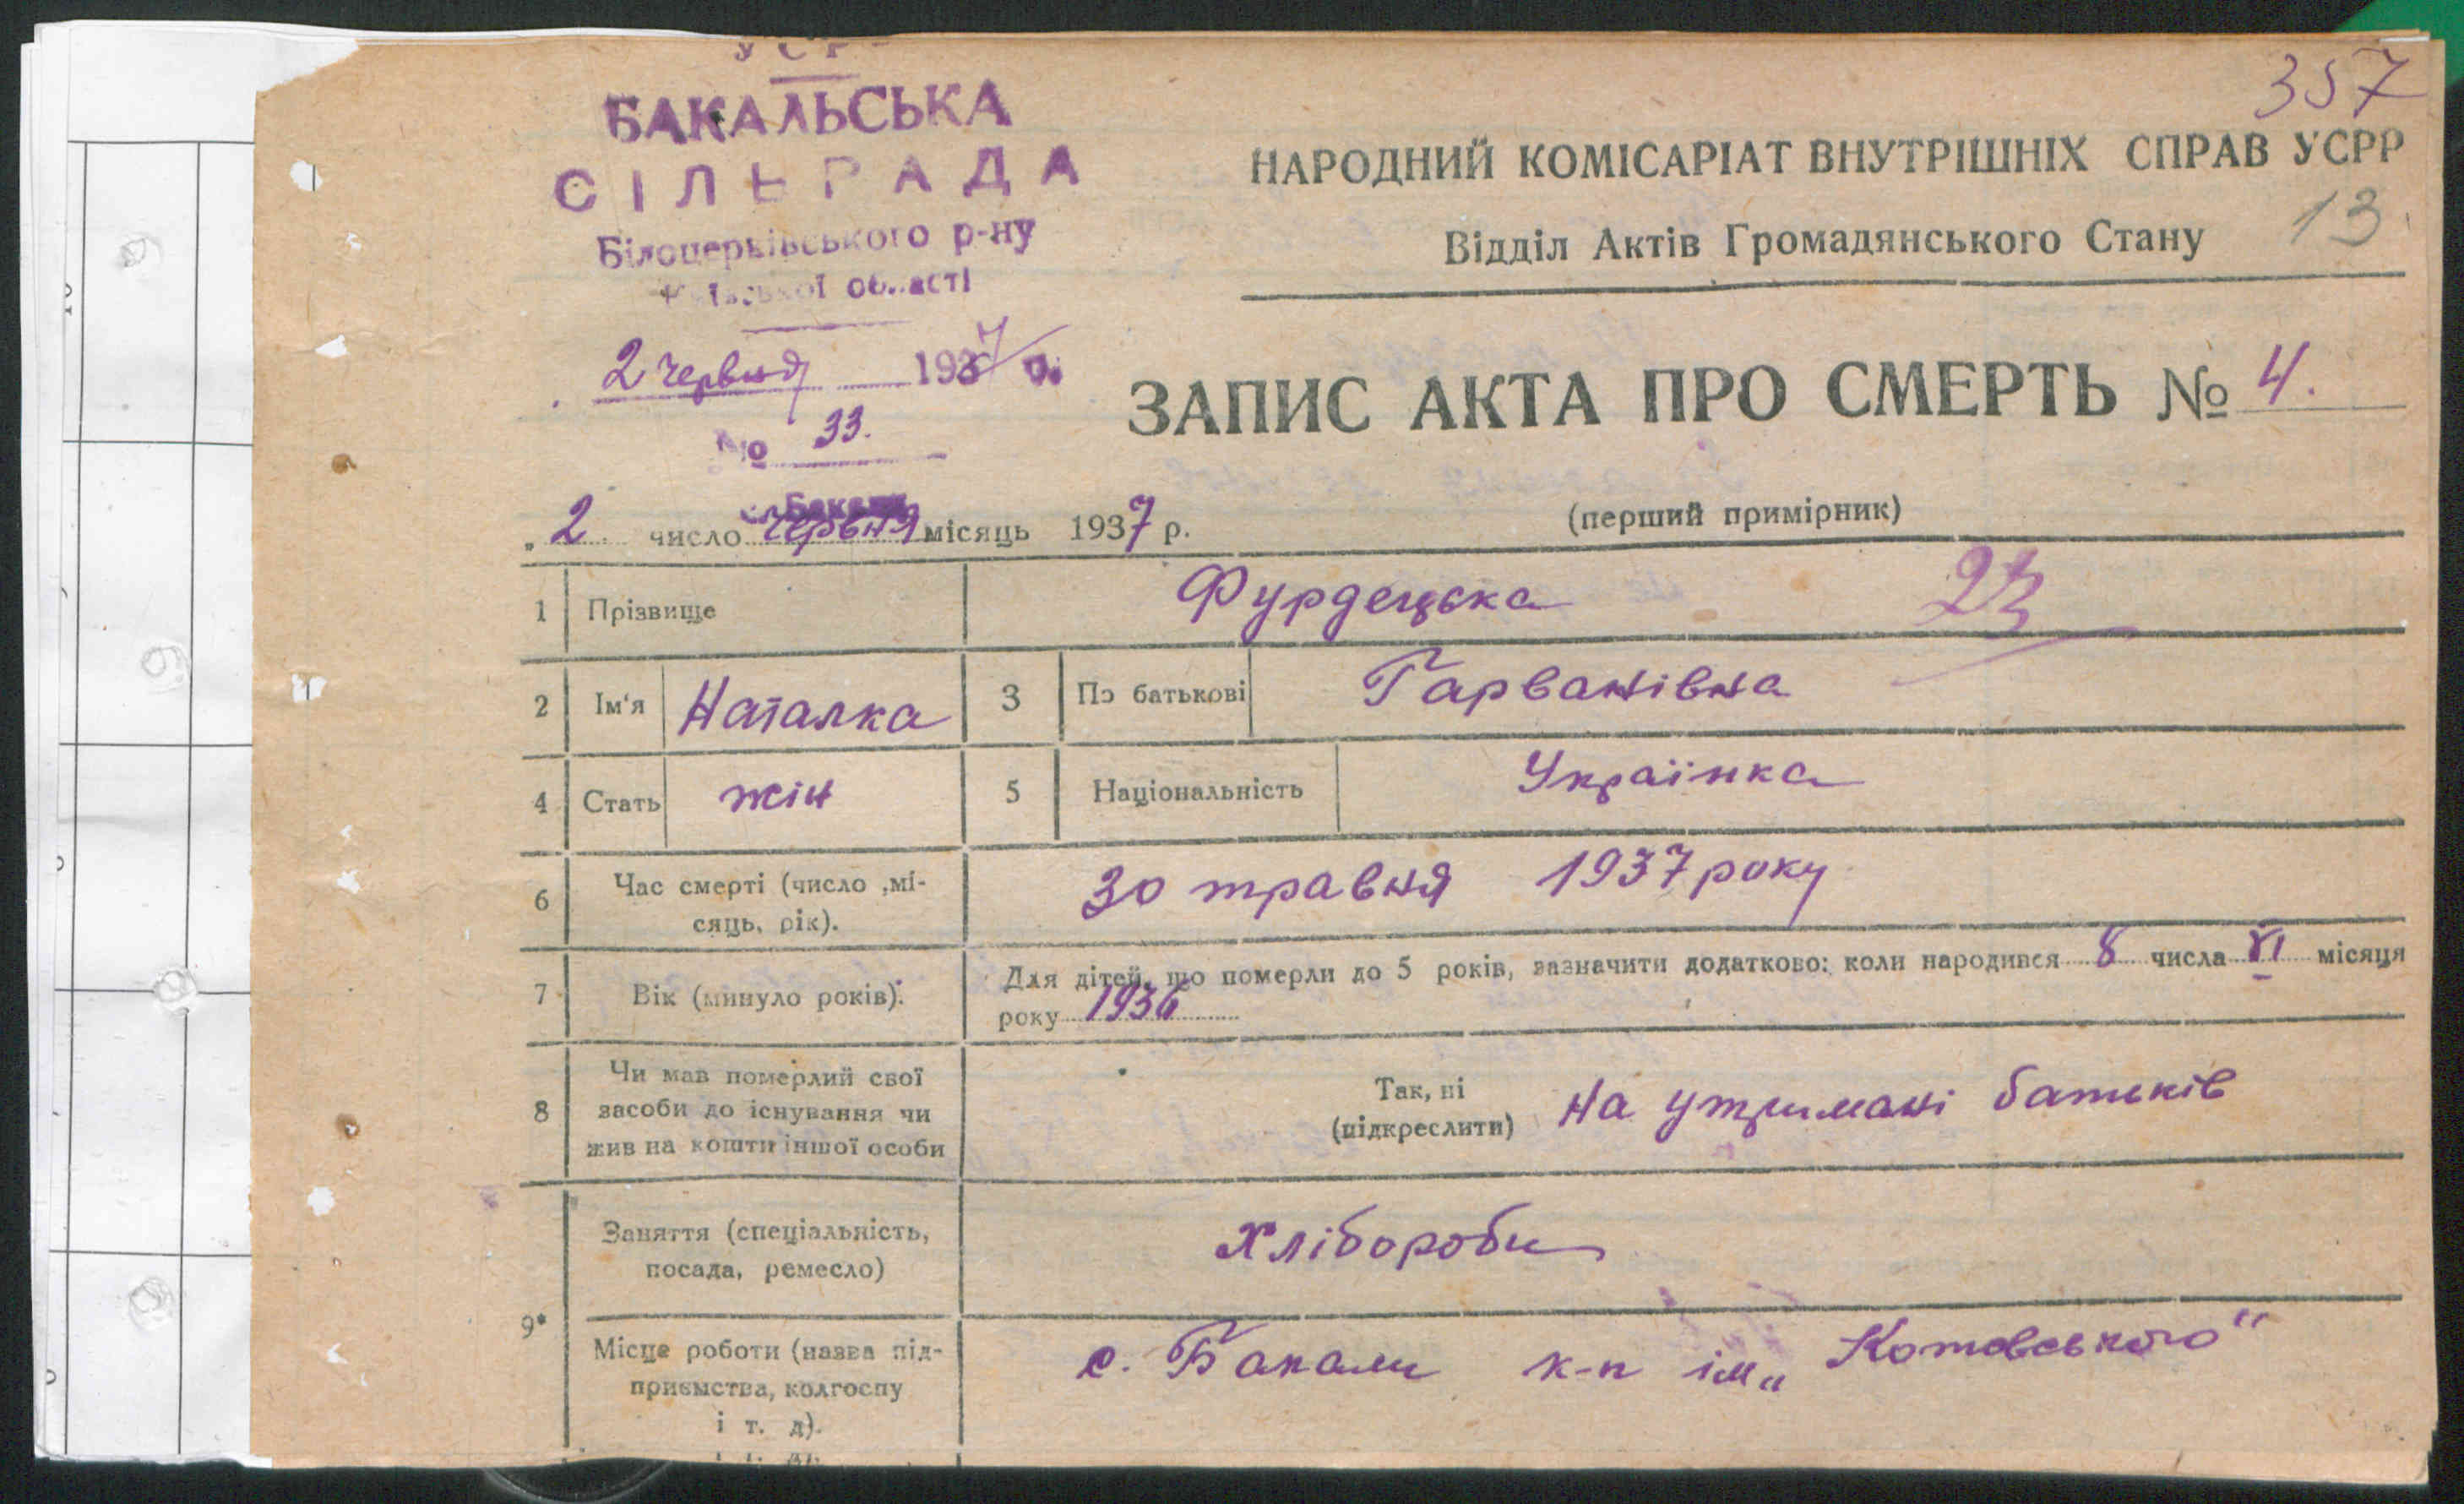 УСРР
БАКАЛЬСЬКА
СІЛЬРАДА
Білоцерківського р-ну
Київської області
2 червня 1937 р.
№ 33.
с. Бакали
357
НАРОДНИЙ КОМІСАРІАТ ВНУТРІШНІХ СПРАВ УСРР
Відділ Актів Громадянського Стану 13
ЗАПИС АКТА ПРО СМЕРТЬ № 4.
(перший примірник)
„ 2 число червня місяць 1937 р.
1 Прізвище Фурдецька 23
2 Ім'я Наталка 3 По батькові Гарванівна
4 Стать жін 5 Національність Українка
6 Час смерті (число ,мі-
сяць, рік). 30 травня 1937 року
7 Вік (минуло років). Для дітей, що померли до 5 років, зазначити додатково: коли народився 8 числа VI місяця
року 1936
8 Чи мав померлий свої
засоби до існування чи
жив на кошти іншої особи
Так, ні
(підкреслити) на утримані батьків
9* Заняття (спеціальність,
посада, ремесло) Хлібороби
Місце роботи (назва під-
приємства, колгоспу
і т. д).
с. Бакали к-п ім „Котовського"